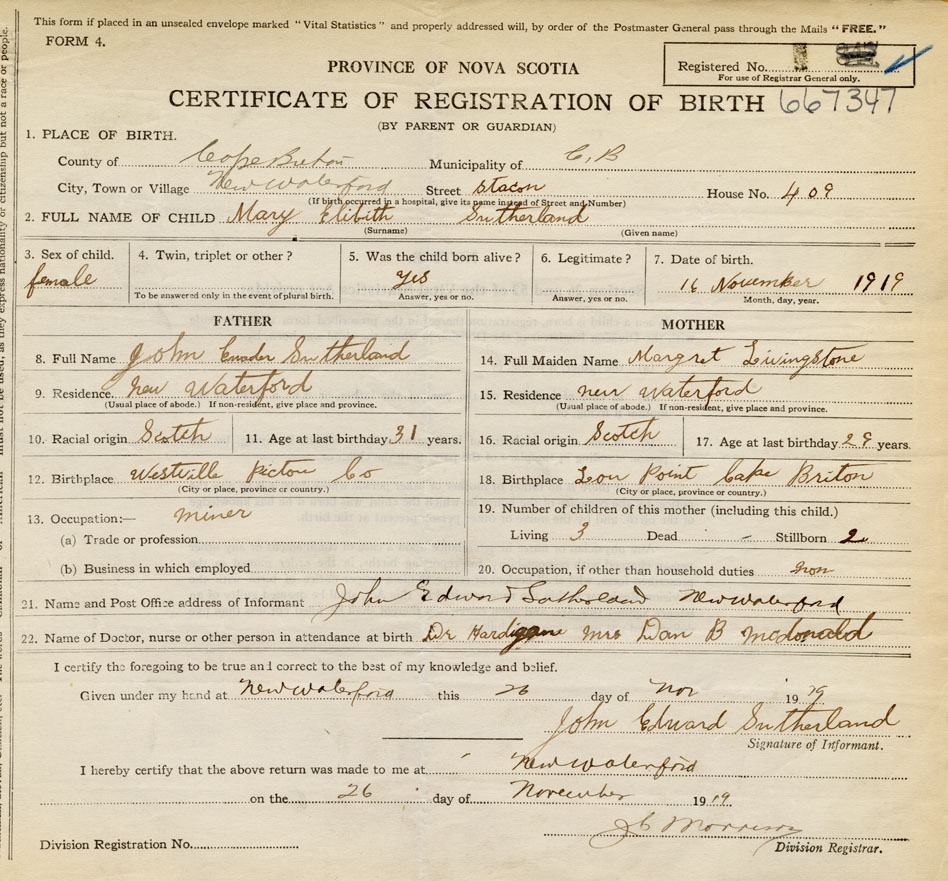 This form if placed in an unsealed envelope marked "Vital Statistics" and properly addressed will, by order of the Postmaster General pass through the Mails "FREE."
FORM 4.
Registered No.
For use of Registrar General only.
PROVINCE OF NOVA SCOTIA
CERTIFICATE OF REGISTRATION OF BIRTH 667347
(BY PARENT OR GUARDIAN)
1. PLACE OF BIRTH.
County of Cape Breton Municipality of C, B
City, Town or Village New Waterford Street Stacon House No. 409
(If birth occurred in a hospital, give its name instead of Street and Number)
2. FULL NAME OF CHILD Mary Elibith Sutherland
(Surname) (Given name)
3. Sex of child. 4. Twin, triplet or other? 5. Was the child born alive? 6. Legitimate? 7. Date of birth.
female yes 16 November 1919
To be answered only in the event of plural birth. Answer, yes or no. Answer, yes or no. Month, day, year.
FATHER MOTHER
8. Full Name John Sutherland 14. Full Maiden Name Margret Livingstone
9. Residence. New Waterford 15. Residence new waterford
(Usual place of abode.) If non-resident, give place and province. (Usual place of abode.) If non-resident, give place and province.
10. Racial origin Scotch 11. Age at last birthday 31 years. 16. Racial origin Scotch 17. Age at last birthday 29 years.
12. Birthplace Westville Pictou Co 18. Birthplace Lou Point Cape Briton
(City or place, province or country.) (City or place, province or country.)
13. Occupation:— miner 19. Number of children of this mother (including this child.)
(a) Trade or profession Living 3 Dead - Stillborn 2
(b) Business in which employed 20. Occupation, if other than household duties non
21. Name and Post Office address of Informant John Edward Sutherland New Waterford
22. Name of Doctor, nurse or other person in attendance at birth Dr Mrs Dan B Mcdonald
I certify the foregoing to be true and correct to the best of my knowledge and belief.
Given under my hand at New Waterford this 26 day of Nov 1919
John Edward Sutherland
Signature of Informant.
I hereby certify that the above return was made to me at New Waterford
on the 26 day of November 1919.
J C Morrison
Division Registration No. Division Registrar.